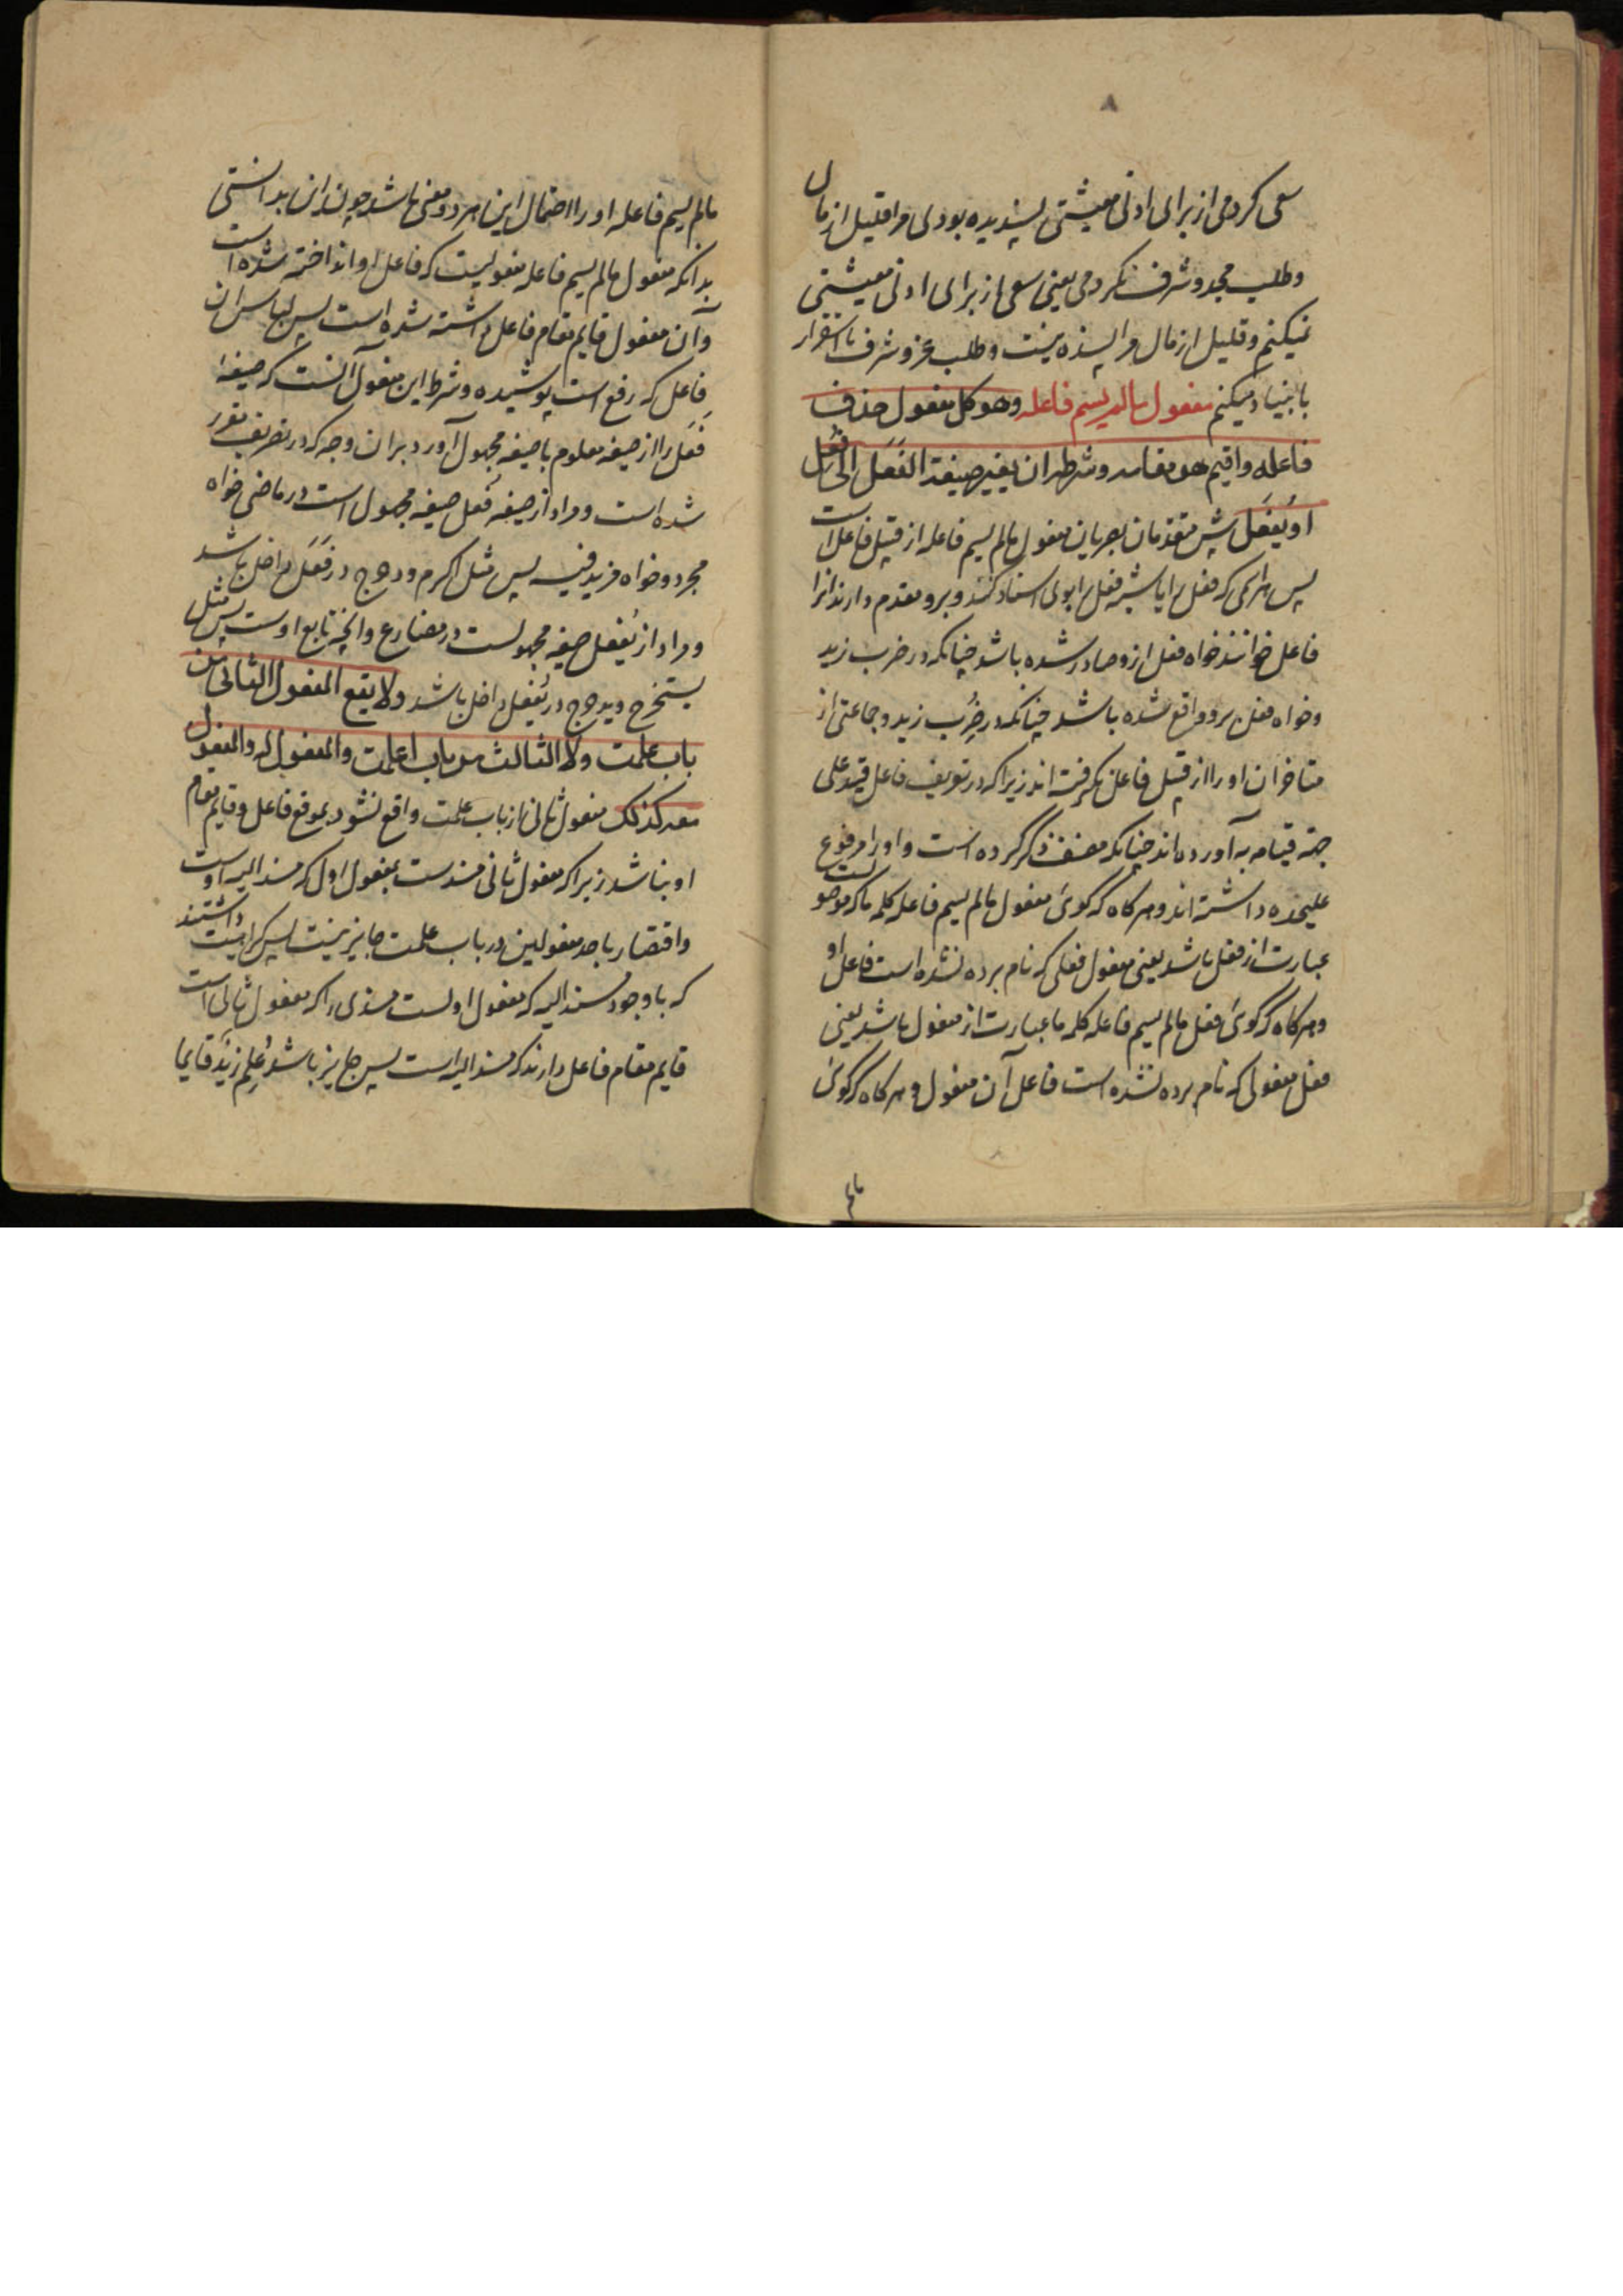 ۸
سعی کردمی از برای ادنی معیشتی پسندیده بودی مرا قلیل از مال
و طلب مجد و شرف نکردمی یعنی سعی از برای ادنی معیشتی
نمیکنم و قلیل از مال مرا پسنده نیست و طلب عز و شرف
میکنم مفعول مالم یسم فاعله وهو کل مفعول حذف
فاعله واقیم هو مقامه وشرطه ان یغیر صیغة الفعل الی فُعِل
او یُفعَل پیش متقدمان بصریان مفعول مالم یسم فاعله از قبیل فاعل است
پس هر اسمی که فعل را یا شبه فعل را بوی اسناد کنند و برو مقدم دارند آنرا
فاعل خوانند خواه فعل ازو صادر شده باشد چنانکه در ضرب زید
و خواه فعل برو واقع شده باشد چنانکه در ضُرِب زید و جماعتی از
متاخران او را از قبیل فاعل نگرفته اند زیرا که در تعریف فاعل قید علی
جهة قیامه به آورده اند چنانکه مصنف ذکر کرده است و او را مرفوع
علیحده داشته اند و هر کاه که کوئی مفعول مالم یسم فاعله کلمه ما که موصولست
عبارت از فعل باشد یعنی مفعول فعلی که نام برده نشده است فاعل او
و هر کاه که کوئی فعل مالم یسم فاعله کلمه ما عبارت از مفعول باشد یعنی
فعل مفعولی که نام برده نشده است فاعل آن مفعول و هر کاه که کوئی
مالم
مالم یسم فاعله او را احتمال این هر دو معنی باشد چون این بدانستی
بدانکه مفعول مالم یسم فاعله مفعولیست که فاعل او انداخته شده است
و آن مفعول قایم مقام فاعل داشته شده است پس لباس ان
فاعل که رفع است پوشیده و شرط این مفعول آنست که صیغه
فعل را از صیغه معلوم با صیغه مجهول آورد بران وجه که در تصریف مقرر
شده است و مراد از صیغه فُعِل صیغه مجهول است در ماضی خواه
مجرد و خواه مزید فیه پس مثل اکرم و دحرج در فعل داخل باشد
و مراد از یُفعل صیغه مجهولست در مضارع و آنچه تابع اوست پس مثل
یستخرج و یدحرج در یُفعل داخل باشد ولا یقع المفعول الثانی من
باب علمت ولا الثالث من باب اعلمت والمفعول له والمفعول
معه کذلک مفعول ثانی از باب علمت واقع نشود بموقع فاعل و قایم مقام
او نباشد زیرا که مفعول ثانی مسندست بمفعول اول که مسند الیه اوست
و اقتصار باحد مفعولین در باب علمت جایز نیست پس کراهیت داشتند
که با وجود مسند الیه که مفعول اولست مسندی را که مفعول ثانی است
قایم مقام فاعل دارند که مسند الیه است پس جایز باشد عُلِم زیدٌ قایما